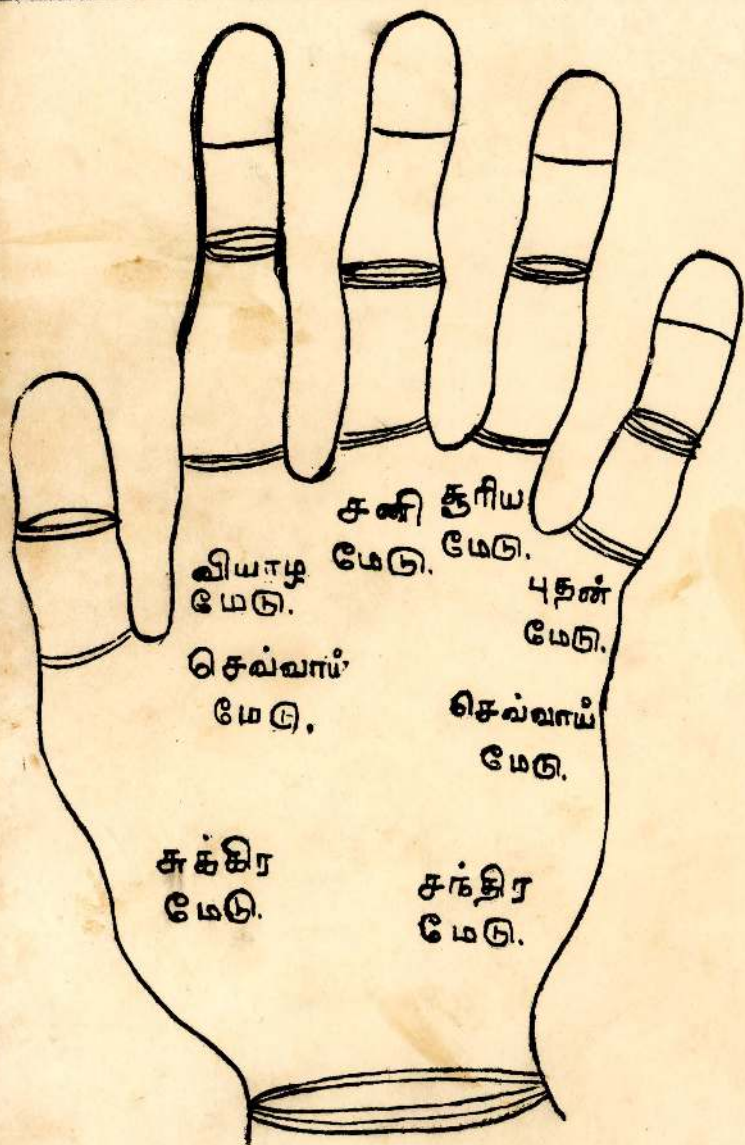 சனி
மேடு.
சூரிய
மேடு.
வியாழ
மேடு.
புதன்
மேடு.
செவ்வாய்
மேடு.
செவ்வாய்
மேடு.
சுக்கிர
மேடு.
சந்திர
மேடு.